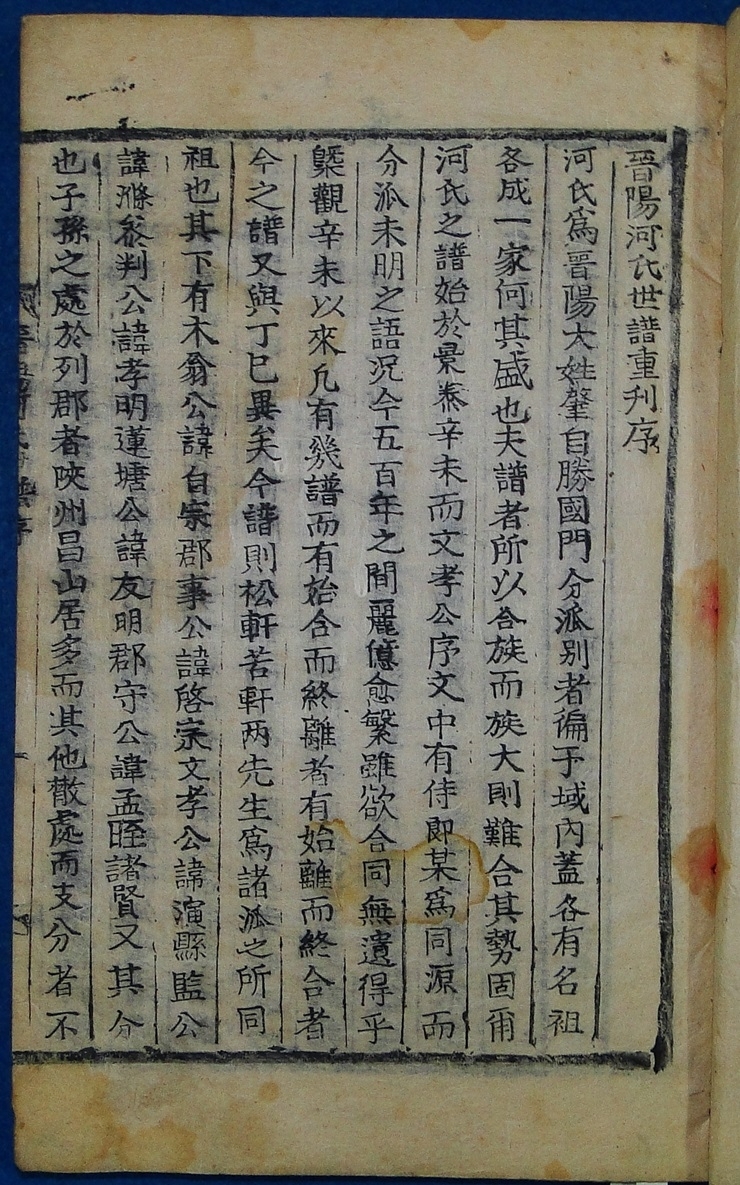 晉陽河氏世譜重刋序
河氏爲晋陽大姓肇自勝國門分派别者徧于域內蓋各有名祖
各成一家何其盛也夫譜者所以合族而族大則難合其勢固甭
河氏之譜始於景泰辛未而文孝公序文中有侍郎某爲同源而
分派未明之語况今五百年之間麗億愈繁雖欲合同無遺得乎
槩觀辛未以來凡有幾譜而有始合而終離者有始離而終合者
今之譜又與丁巳異矣今譜則松軒苦軒两先生爲諸派之所同
祖也其下有木翁公諱自宗郡事公諱啓宗文孝公諱演縣監公
諱滌叅判公諱孝明蓮塘公諱友明郡守公諱孟晊諸賢又其分
也子孫之處於列郡者陜州昌山居多而其他散處而支分者不